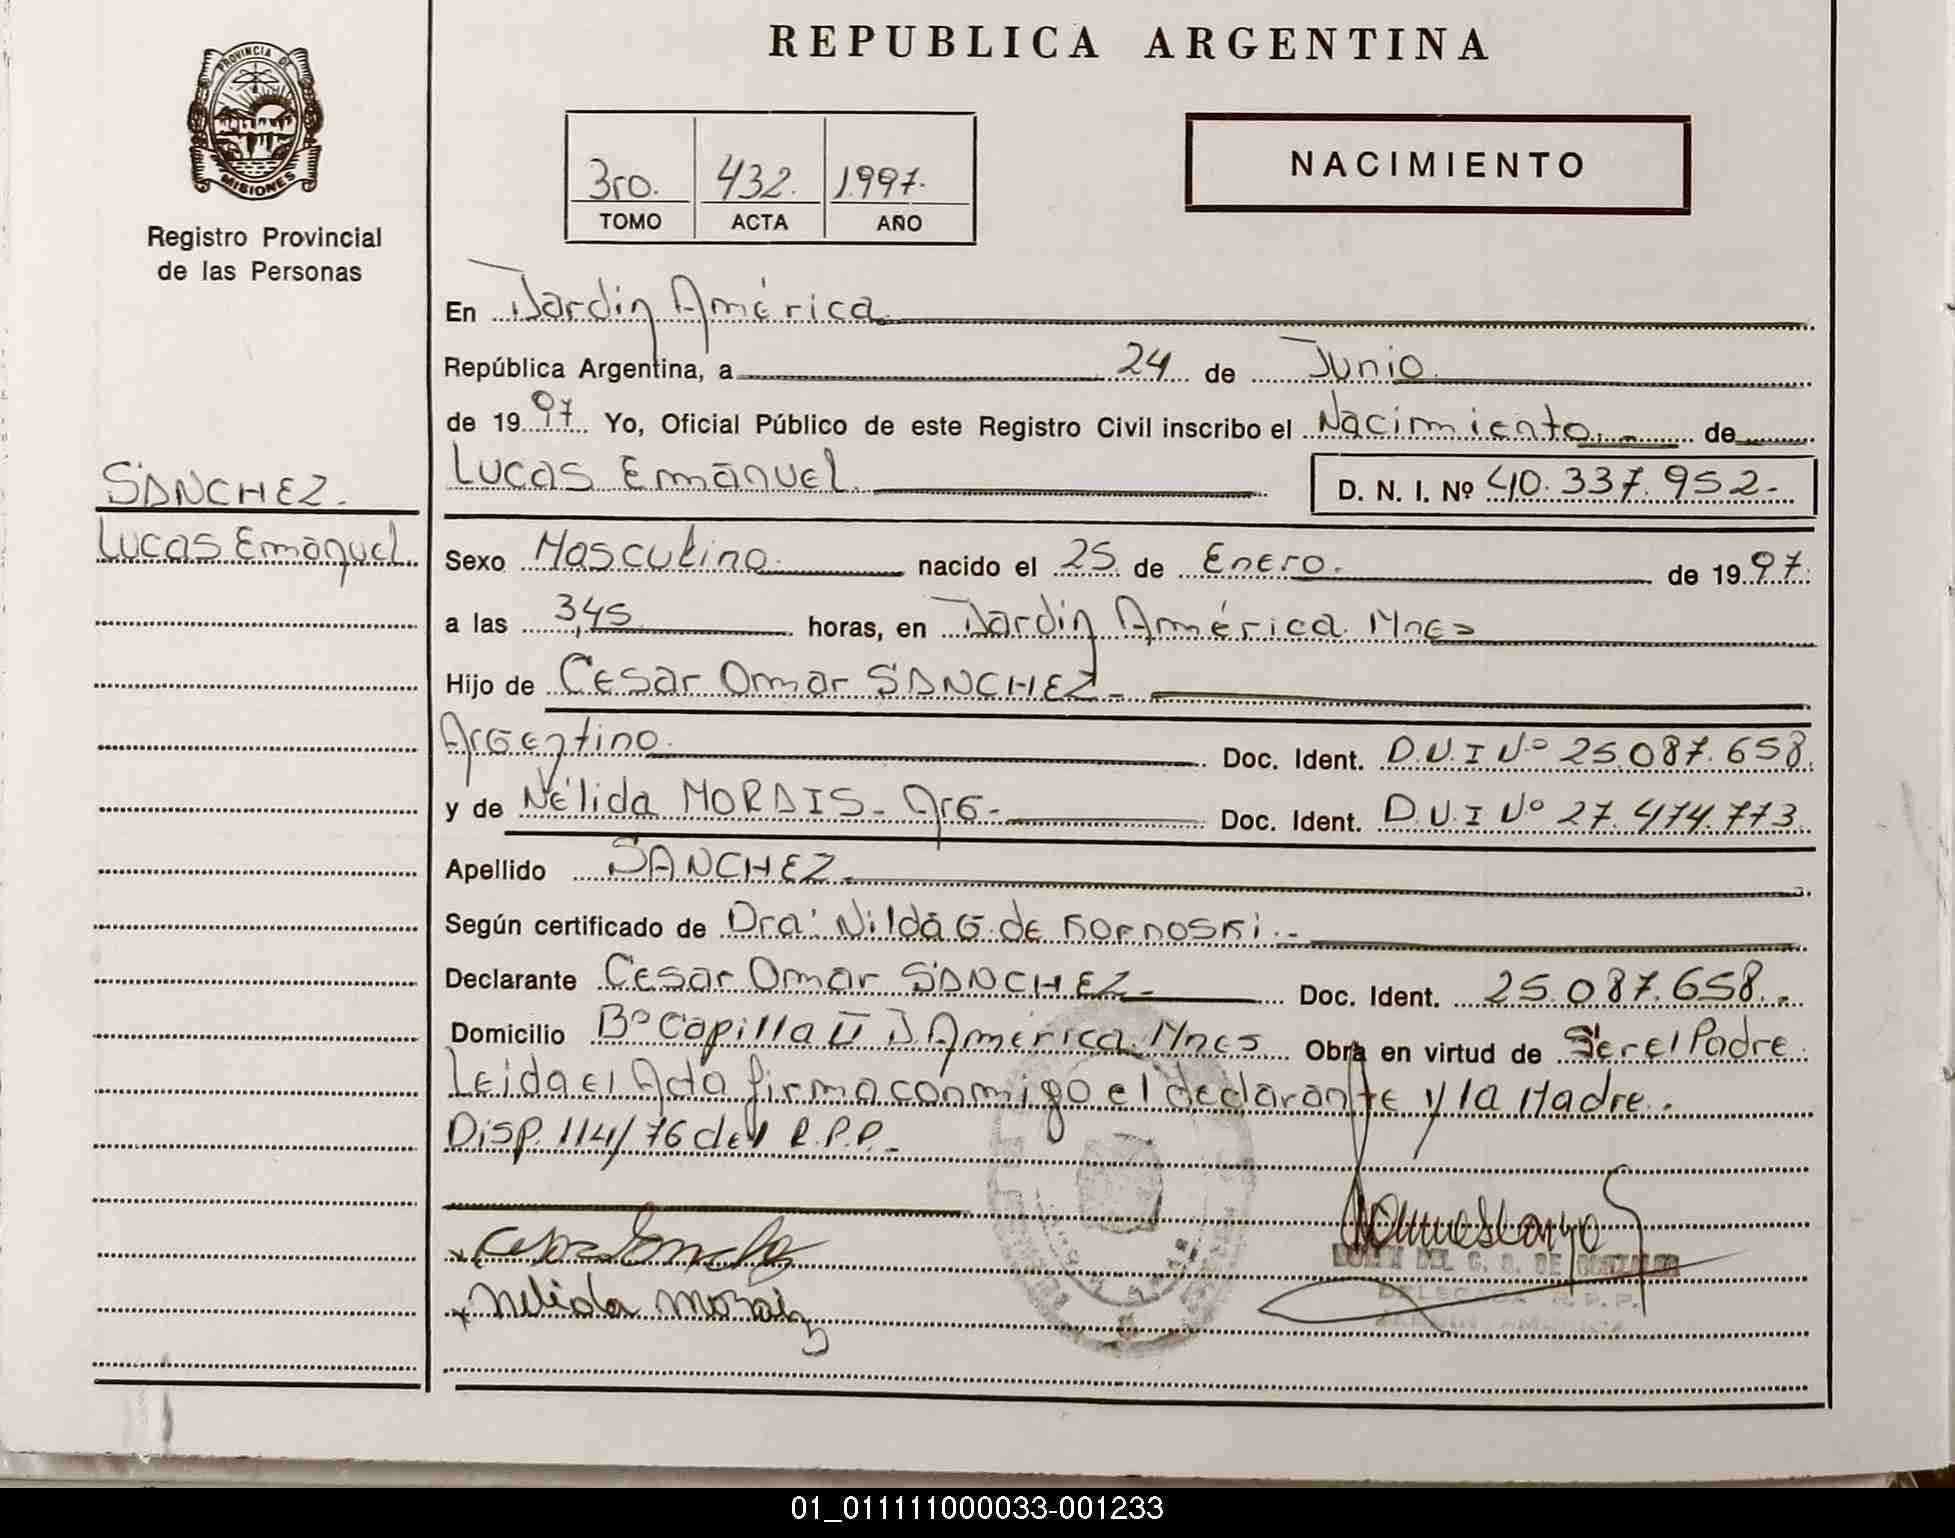 REPUBLICA ARGENTINA
PROVINCIA DE
MISIONES
Registro Provincial
de las Personas
3ro. 432. 1997.
TOMO ACTA AÑO
NACIMIENTO
En Jardin América
República Argentina, a 24 de Junio
de 1997 Yo, Oficial Público de este Registro Civil inscribo el Nacimiento de
Lucas Emanuel D. N. I. Nº 40.337.952-
SANCHEZ.
Lucas Emanuel
Sexo Masculino nacido el 25 de Enero. de 1997.
a las 3,45 horas, en Jardin América. Mnes
Hijo de Cesar Omar SANCHEZ-
Argentino Doc. Ident. D.N.I Nº 25.087.658.
y de Nélida MORAIS- Arg- Doc. Ident. D.N.I Nº 27.474.773.
Apellido SANCHEZ-
Según certificado de Dra: Nilda G. de
Declarante Cesar Omar SANCHEZ- Doc. Ident. 25.087.658.-
Domicilio Bº Capilla II J. América. Mnes Obra en virtud de Ser el Padre
Leida el Acta firma conmigo el declarante y la Madre.
Disp. 114/76 del R.P.P.-
x Nelida Moraiz
DEL C. B. DE GONZALEZ
DELEGADA R.P.P.
JARDIN AMERICA
01_011111000033-001233